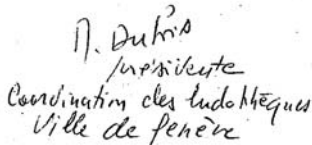 M. Dubois
présidente
Coordination des ludothèques
Ville de Genève